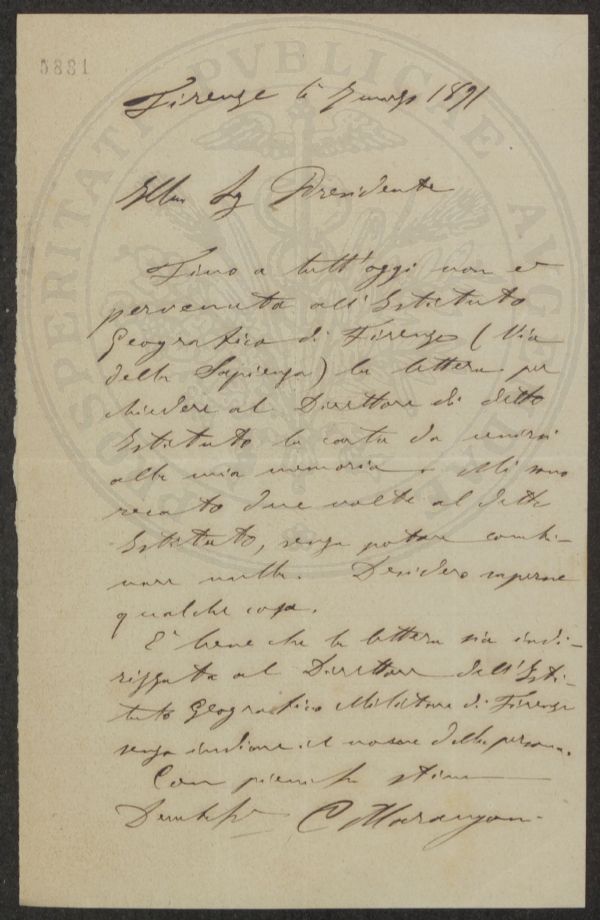 5831
PROSPERITATI PVBLICAE AVGENDAE
Firenze 6 marzo 1891
Ill.mo Sig Presidente
Fino a tutt'oggi non è
pervenuta all'Istituto
Geografico di Firenze (Via
della Sapienza) la lettera per
chiedere al Direttore di detto
Istituto la carta da unirsi
alla mia memoria. Mi sono
recato due volte al detto
Istituto, senza potere combi-
nare nulla. Desidero saperne
qualche cosa.
È bene che la lettera sia indi-
rizzata al Direttore dell'Isti-
tuto Geografico Militare di Firenze
senza indicare il nome della persona.
Con pienissima stima
C Marangoni